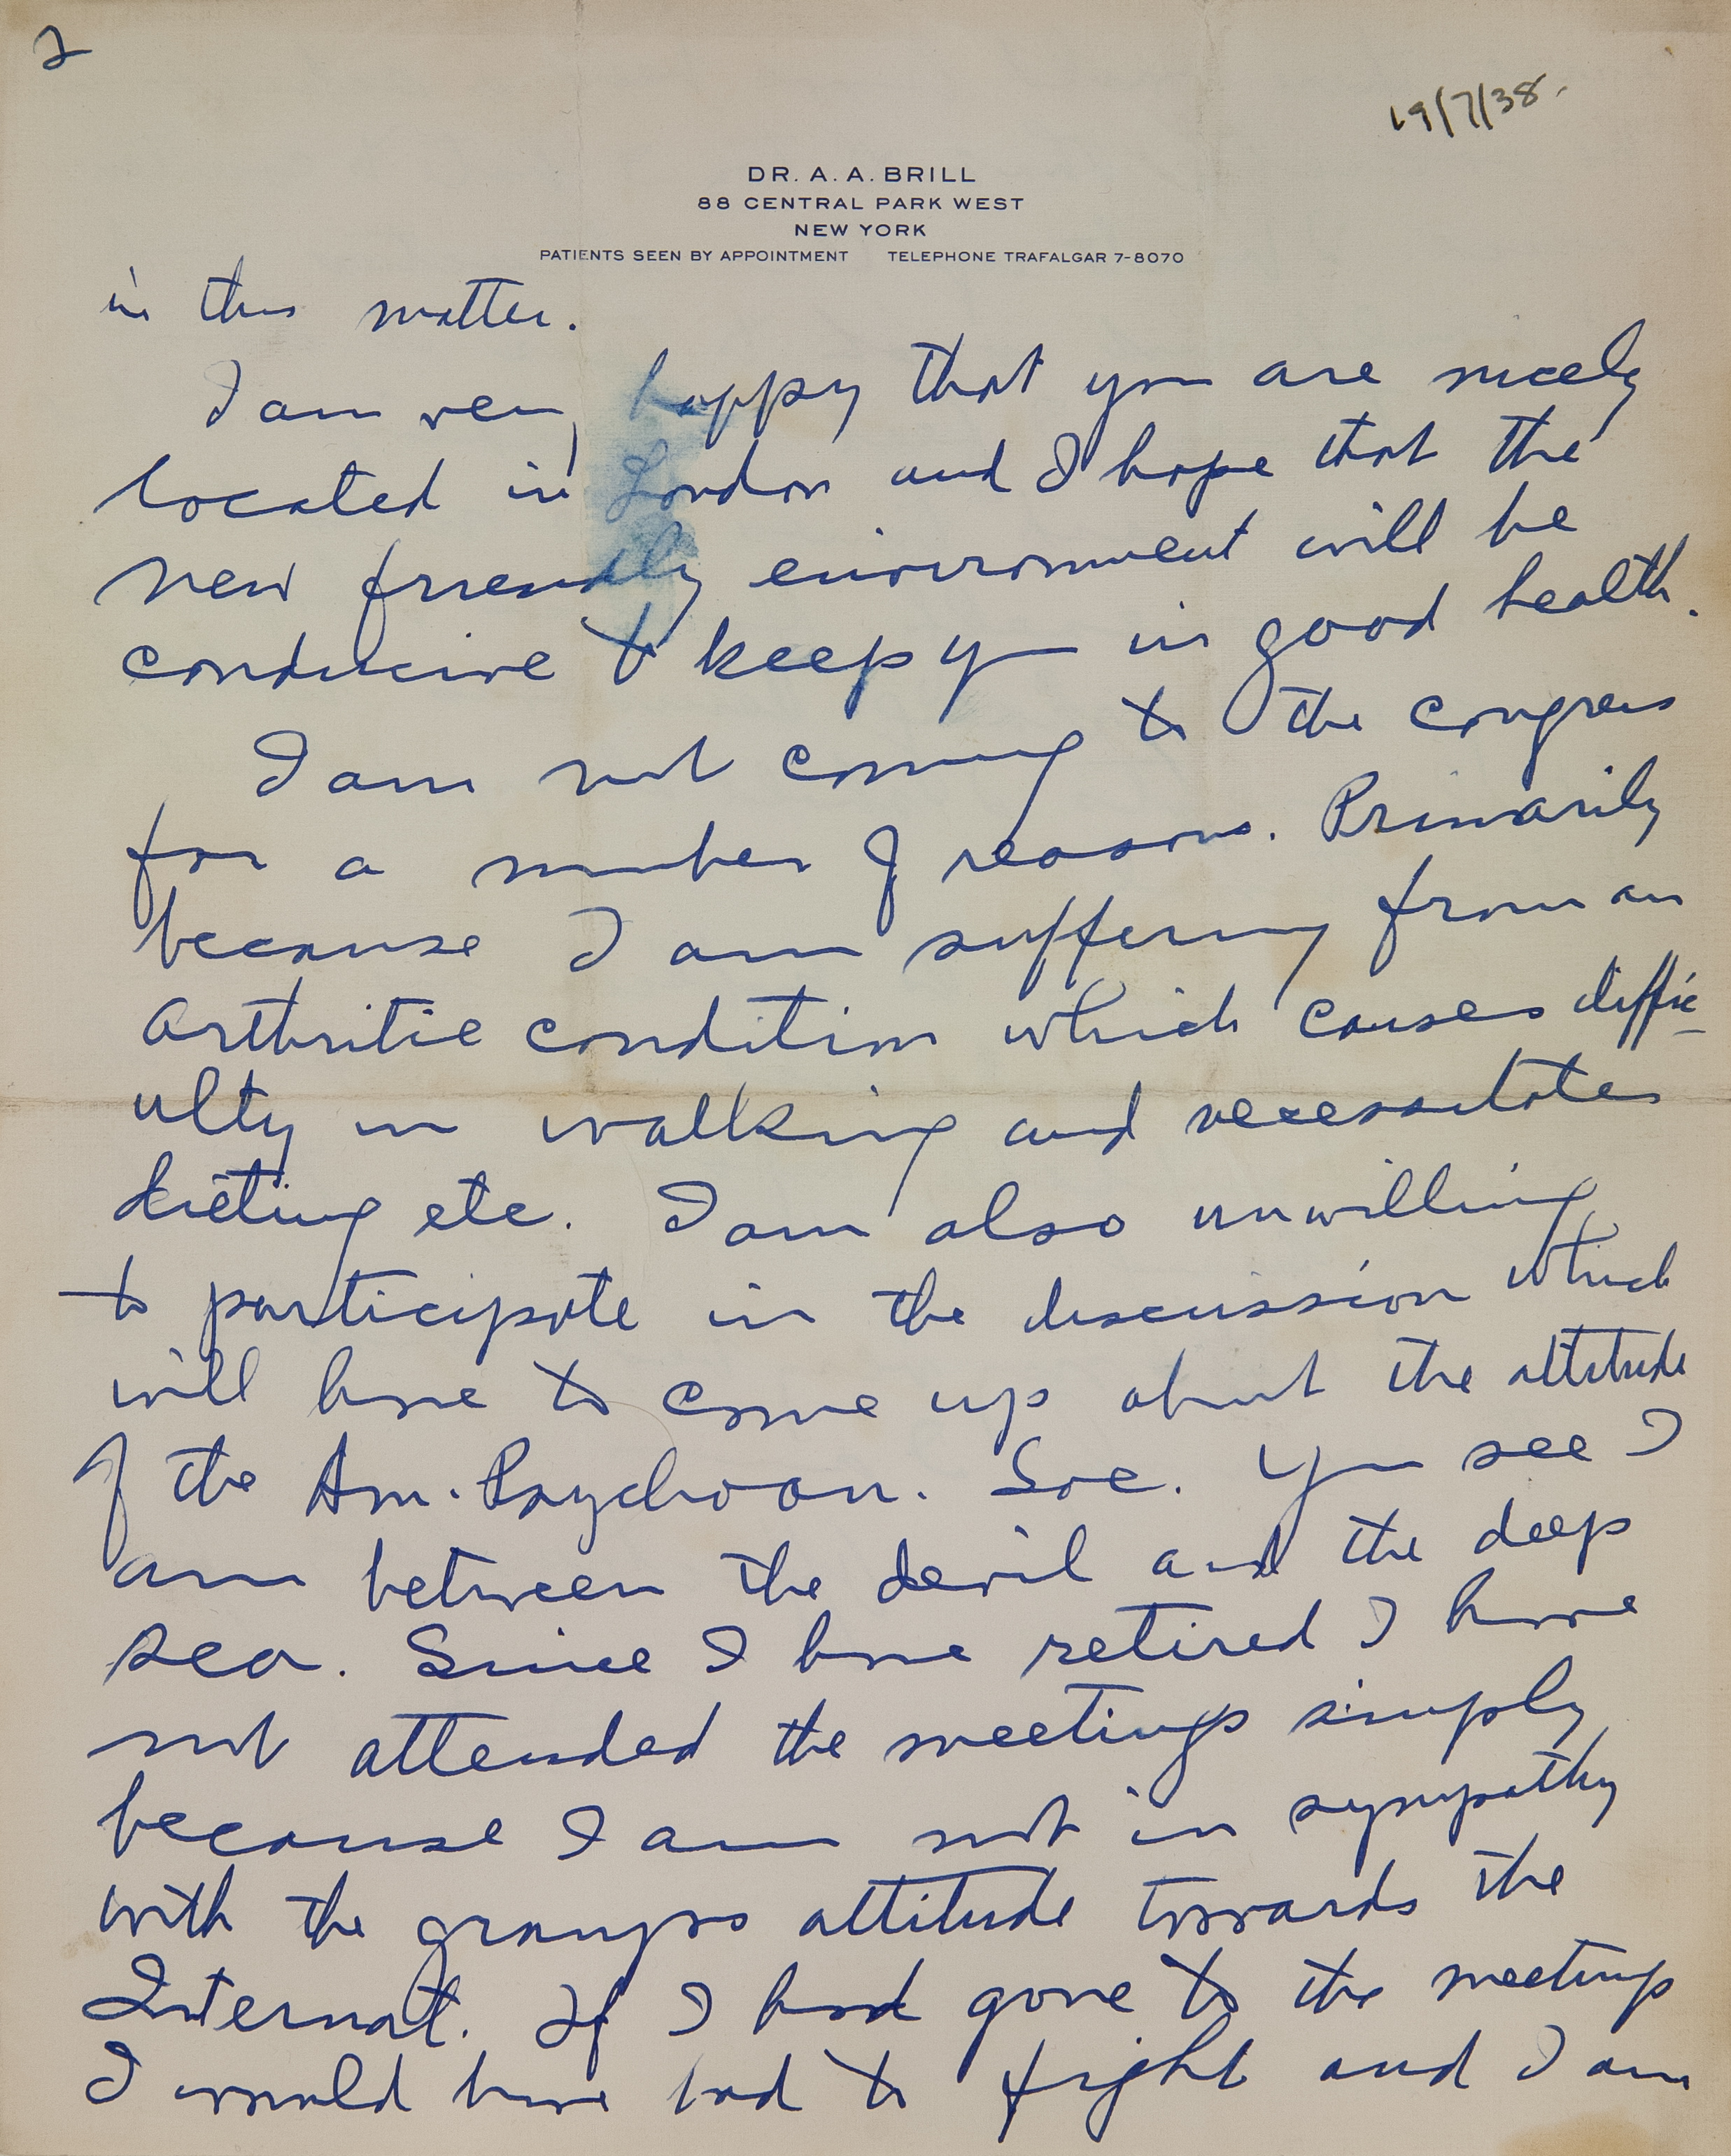 2
19/7/38.
DR. A. A. BRILL
88 CENTRAL PARK WEST
NEW YORK
PATIENTS SEEN BY APPOINTMENT TELEPHONE TRAFALGAR 7-8070
in this matter.
I am very happy that you are nicely
located in London and I hope that the
new friendly environment will be
conducive to keep you in good health.
I am not coming to the congress
for a number of reasons. Primarily
because I am suffering from an
arthritic condition which causes diffic-
ulty in walking and necessitates
dieting etc. I am also unwilling
to participate in the discussion which
will have to come up about the attitude
of the Am. Psychoan. Soc. You see I
am between the devil and the deep
sea. Since I have retired I have
not attended the meetings simply
because I am not in sympathy
with the groups attitude towards the
Internat. If I had gone to the meetings
I would have had to fight and I am